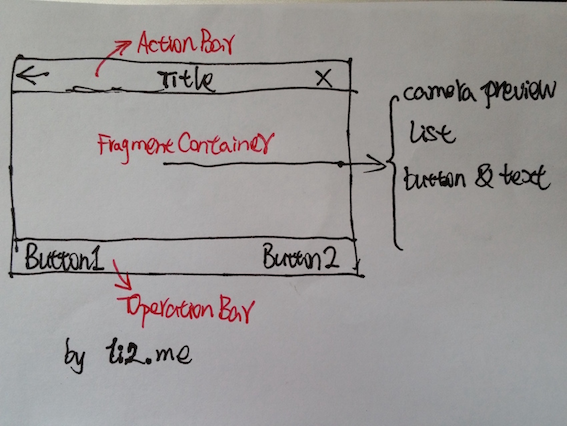 ActionBar
← Title X
Fragment Container
camera preview
list
button & text
Button1 Button2
OperationBar
by li2.me